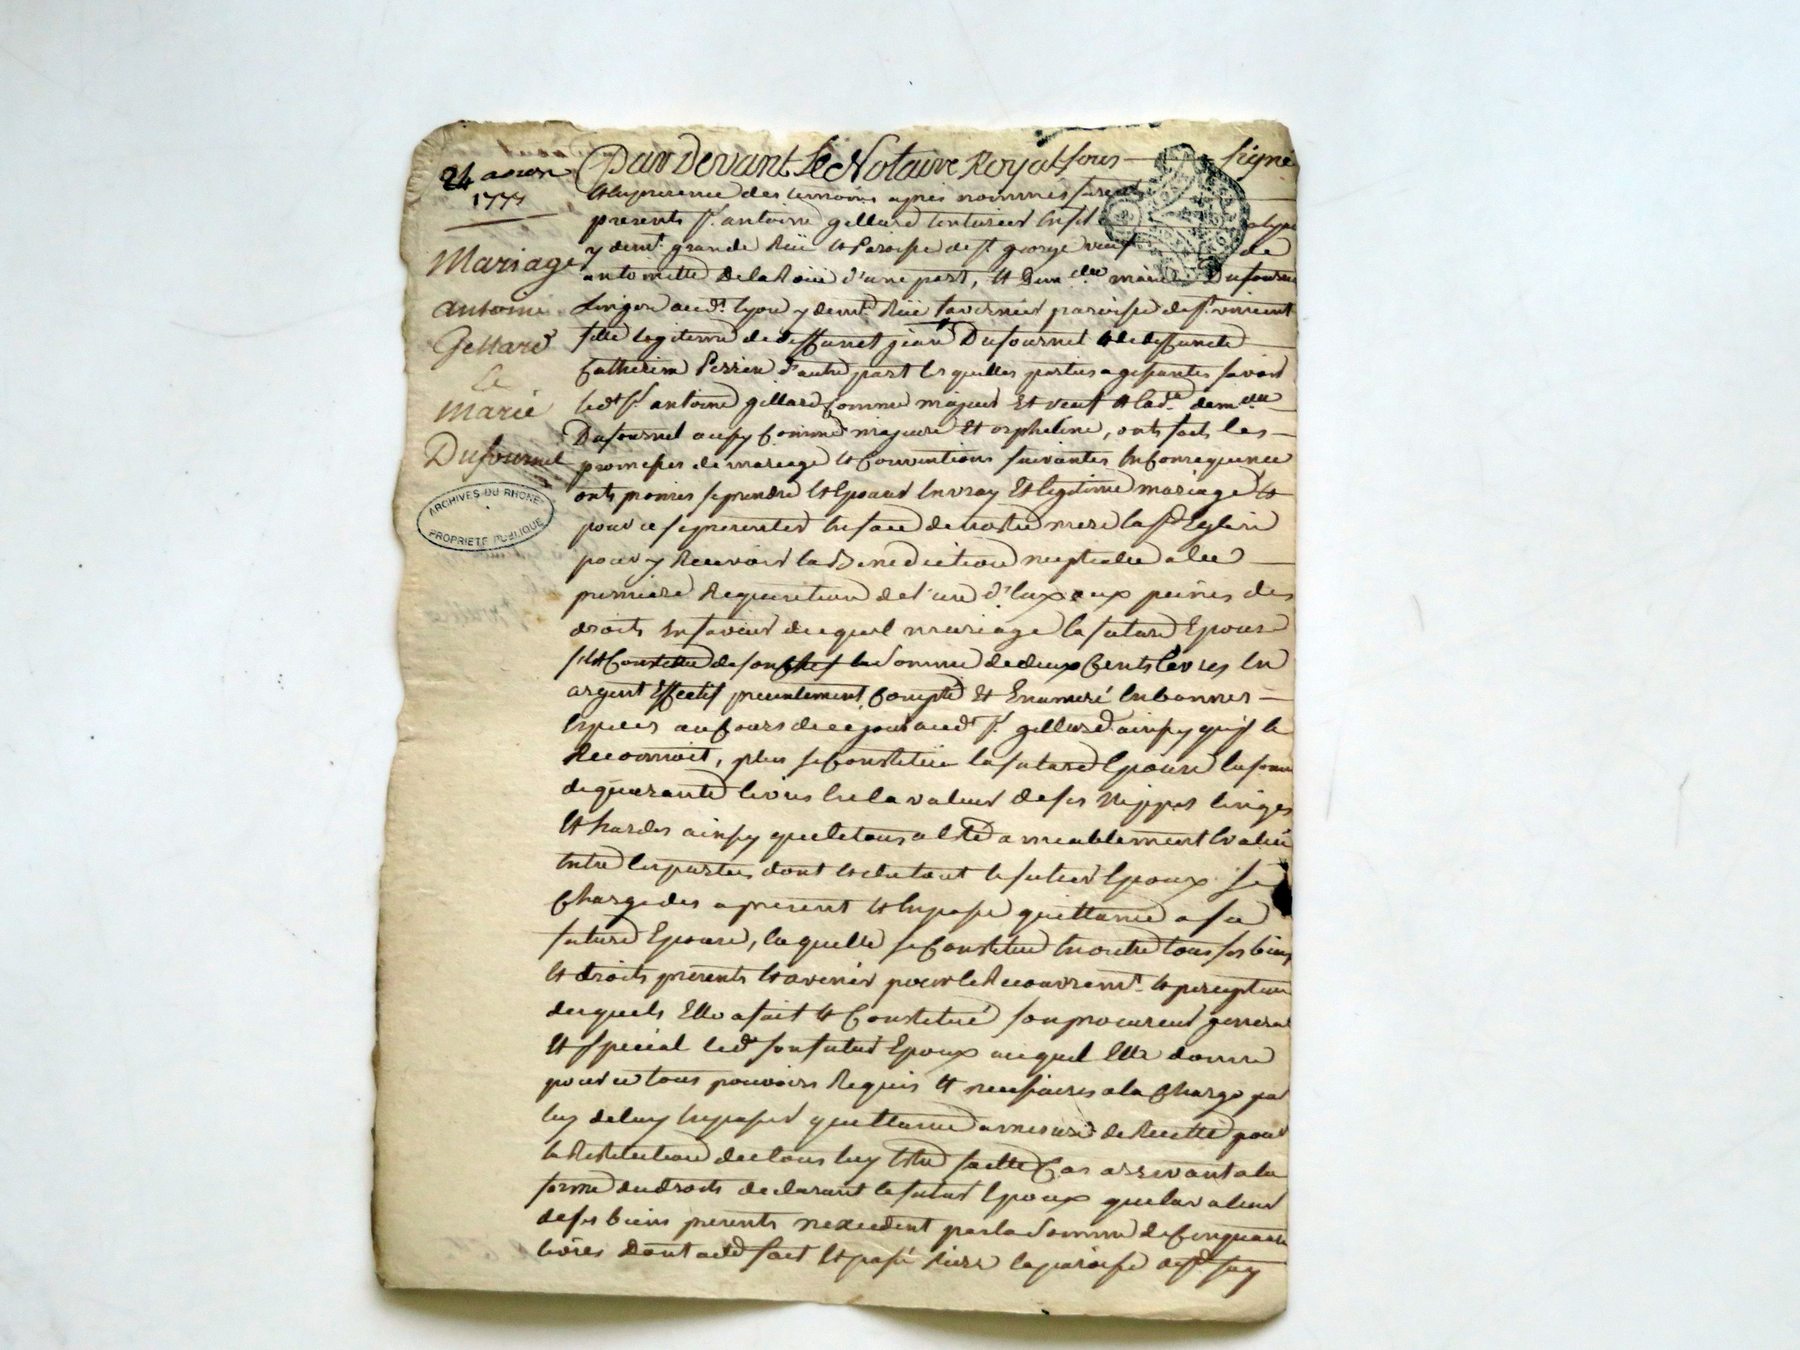 24 aoust
1777
Mariage
antoine
Gellard
&
Marie
Dufournel
ARCHIVES DU RHONE
PROPRIETE PUBLIQUE
Par Devant Le Notaire Royal sous signé
Et En presence des temoins apres nommés furent
presents Sr. antoine gellard teinturier
y demt. grande Rüe Et Paroisse de St. george veuf de
antoinette De la Roüe d'une part, Et Dem.elle marie Dufournel
Lingere aud. Lyon y demte. Rüe Tavernier paroisse de St. vincent
fille legitime de deffunct jean Dufournel Et de deffuncte
Catherine Perrin d'autre part lesquelles parties agissantes savoir
led. Sr. antoine gellard Comme majeur Et veuf Et lad. demelle
Dufournel aussy Comme majeure Et orpheline, ont fait les
promesses de mariage Et Conventions suivantes En Consequence
ont promis se prendre Et Epouser En vray Et legitime mariage Et
pour ce se presenter En face de nostre mere la Ste Eglise
pour y Recevoir la Benediction nuptialle a la
premiere Requisition de l'un d'Eux aux peines de
droits En faveur duquel mariage la future Epouse
s'est Constitué de son Chef la Somme de deux Cents livres En
argent Effectif presentement Compté Et Enumeré En bonnes
Especes au Cours de ce jour aud. Sr. gellard ainsy qu'il le
Reconnoit, plus se Constitüe la future Epouse la somme
de quarante livres En la valeur de ses Nippes linges
Et hardes ainsy que le tous a Eté amiablement Evalué
Entre les parties dont Et du tout le futur Epoux se
Charge des a present Et En passe quittance a sa
future Epouse, laquelle se Constitue En outre tous ses biens
Et droits presents Et avenir pour le Recouvremt. Et perception
desquels Elle a fait Et Constitué son procureur general
Et special led. son futur Epoux auquel Elle donne
pour ce tous pouvoirs Requis Et necessaires a la Charge par
luy de luy En passer quittance a mesure de Recette pour
la Restitution du tous luy Etre faitte Cas arrivant a la
forme du droits declarant le futur Epoux que la valeur
de ses biens presents n'excedent pas la Somme de Cinquante
livres Dont acte fait Et passé Riere la paroisse de St. Foy